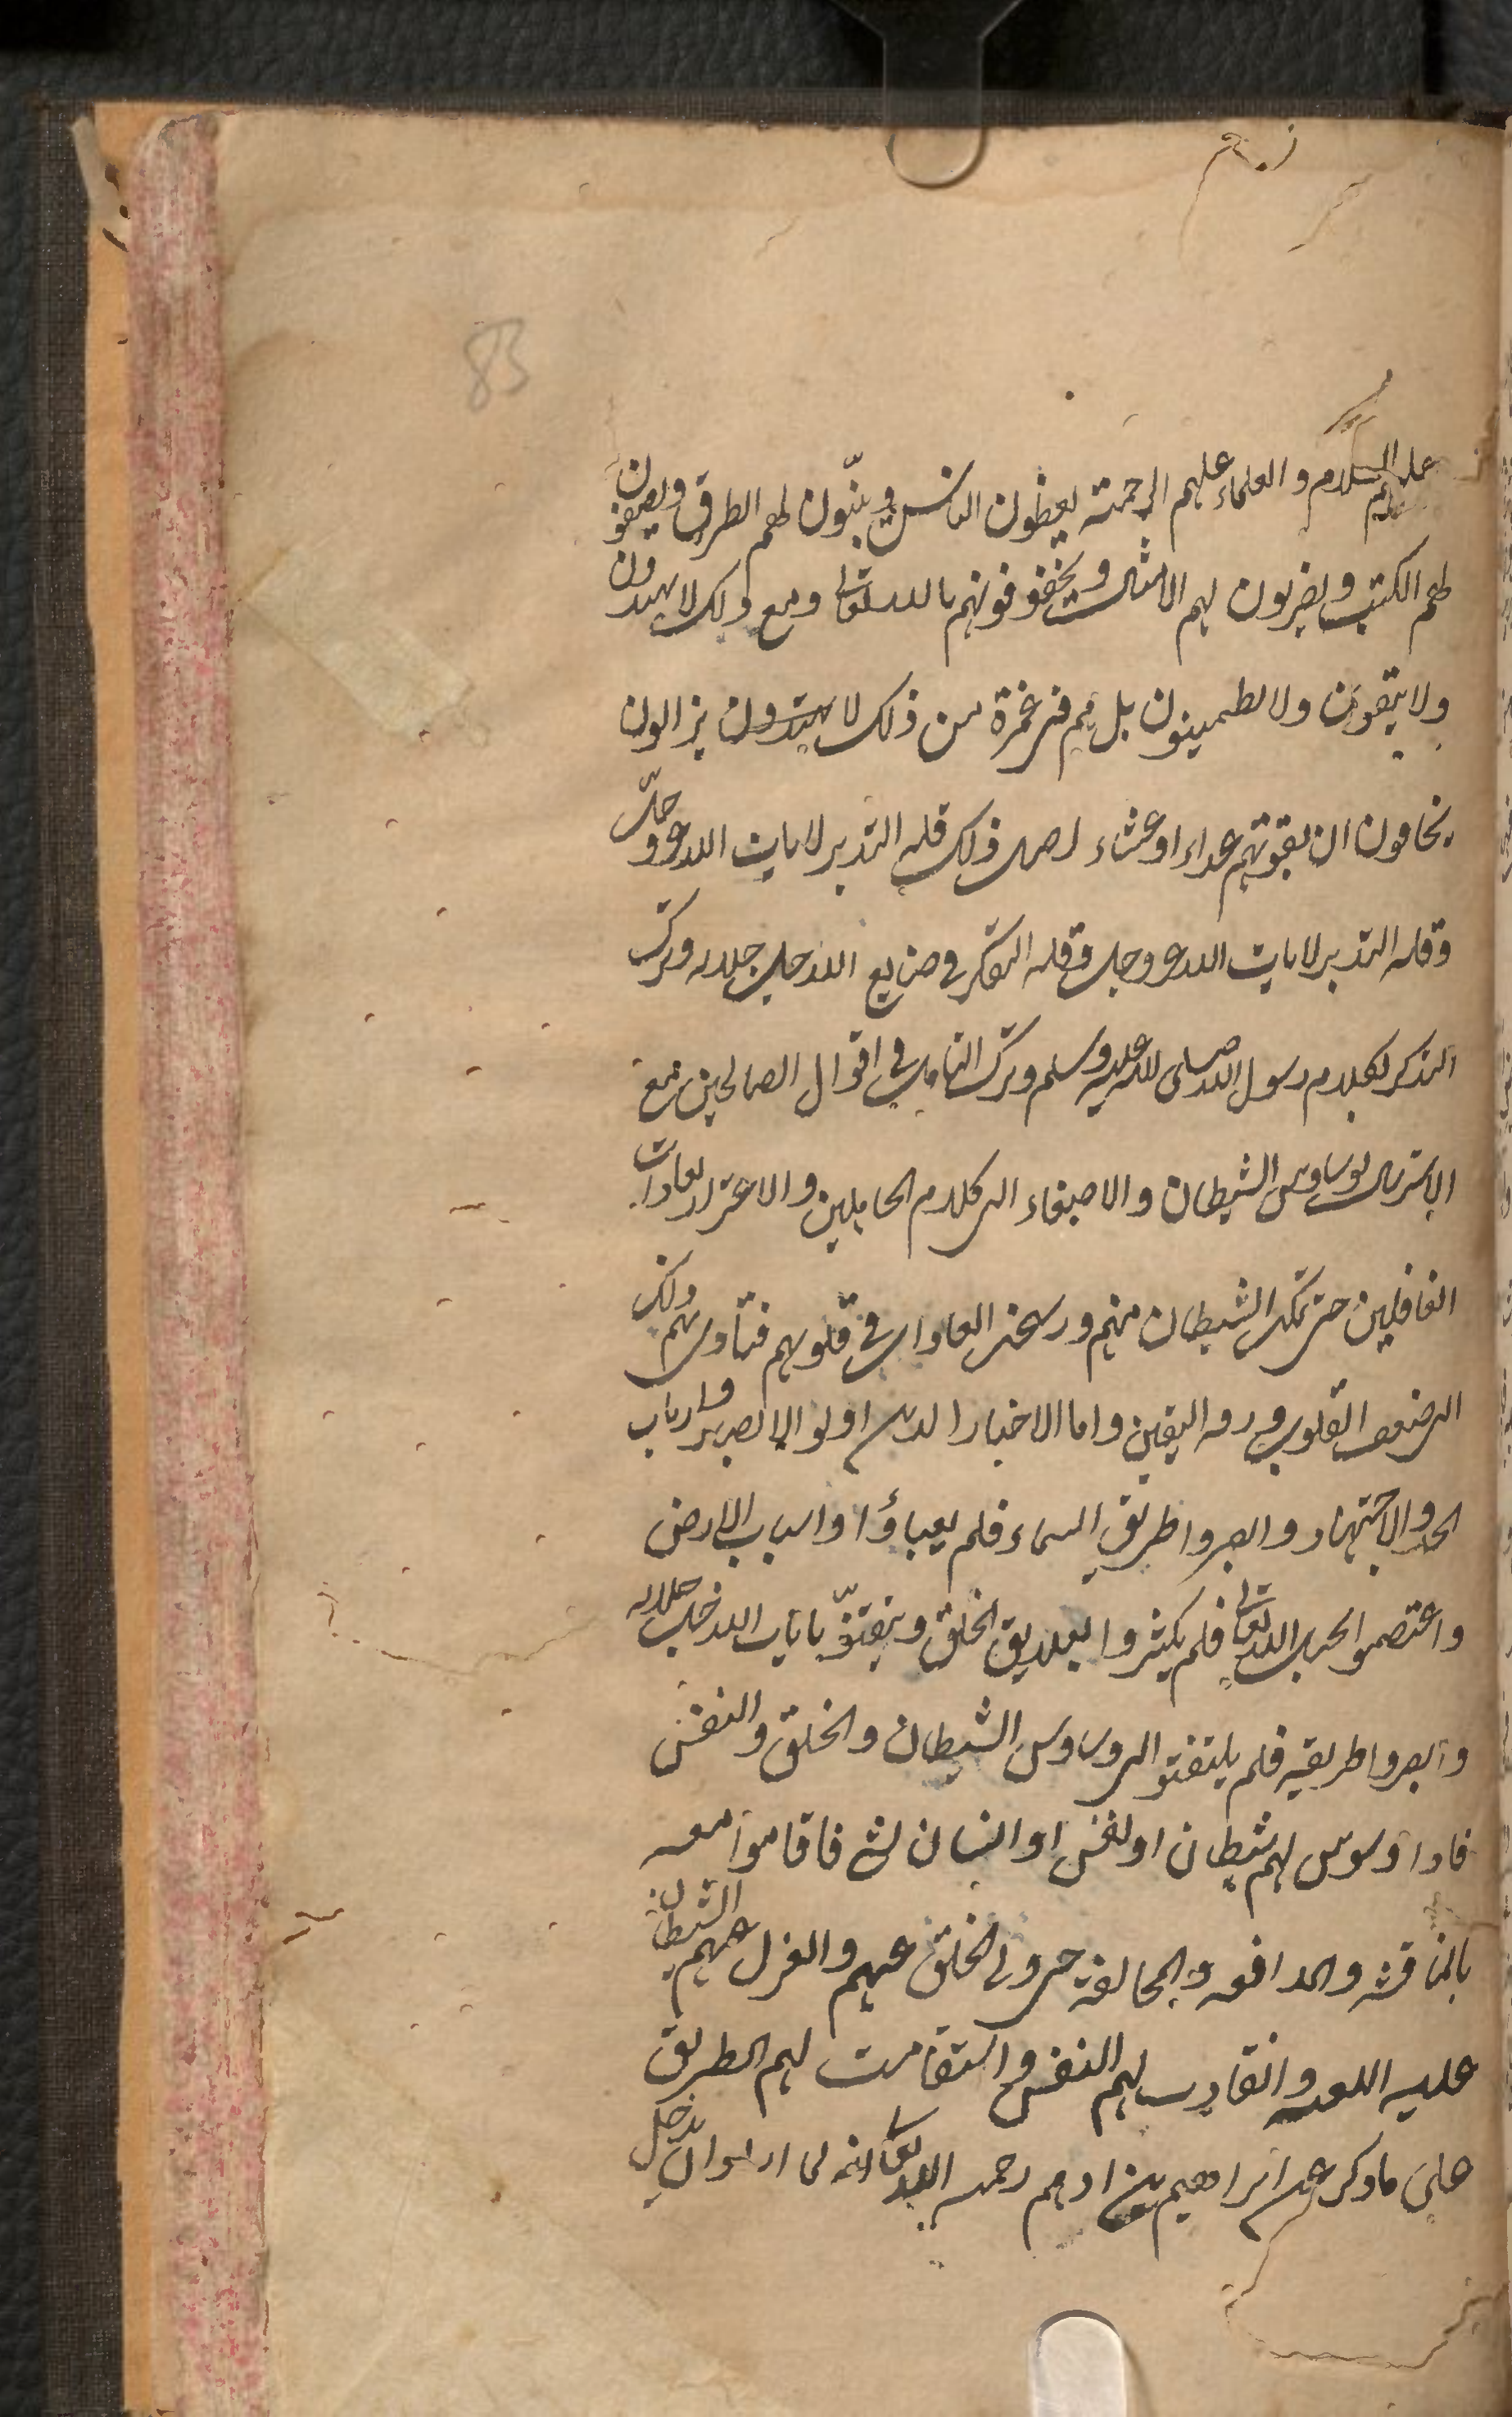 83
عليهم السلام والعلماء عليهم الرحمة يعظون الناس ويبنّون لهم الطرق ويصنفون
لهم الكتب ويضربون لهم الامثال ويخفوفونهم بالله تعالى ومع ذلك لا يهتدون
ولا يتقون ولا يطمينون بل هم في غمرة من ذلك لا يهتدون يزالون
يخافون ان يفوتهم غداء او عشاء اصل ذلك قله التدبر لايات الله عز وجلّ
وقله التدبر لايات الله عز وجل وقله التفكر في صنايع الله جل جلاله وترك
التذكر لكلام رسول الله صلى الله عليه وسلم وترك التامل في اقوال الصالحين مع
الاسترسال لوساوس الشيطان والاصغاء الى كلام الجاهلين والاغترار بعادات
الغافلين حتى تمكن الشيطان منهم ورسخت العادات في قلوبهم فتأدى بهم ذلك
الى ضعف القلوب ورقه اليقين واما الاخيار الذين اولو الابصر وارباب
الجد والاجتهاد وابصروا طريق السماء فلم يعبأوا واسباب الارض
واعتصموا بحبل الله تعالى فلم يكثروا بعلايق الخلق وتيقنوّ بايات الله جل جلاله
وابصروا طريقه فلم يلتفتو الى وساوس الشيطان والخلق والنفس
فاذا وسوس لهم شيطان او نفس او انسان لشئ فاقاموا معه
بالمناقشه والمدافعه والمخالفة حتى ولى الخلق عنهم وانعزل عنهم الشيطان
عليه اللعنه وانقادت لهم النفس واستقامت لهم الطريق
على ما ذكر عن ابراهيم بن ادهم رحمه الله تعالى انه لما اراد ان يدخل